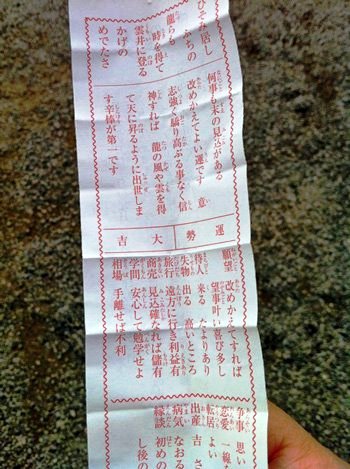 ひそみ居し
ふちの
龍らも
時を得て
雲井に登る
かげの
めでたさ
何事も末の見込がある
改めかえてよい運です 意
志強く驕り高ぶる事なく信
神すれば 龍の風や雲を得
て天に昇るように出世しま
す辛棒が第一です
運勢
大吉
願望 改めかえてすれば
望事叶い喜び多し
待人 来る たよりあり
失物 出る 高いところ
旅行 遠方に行き利益有
商売 見込確なれば儲有
学問 安心して勉学せよ
相場 手離せば不利
争事 思い
恋愛 一線
転居 よい
出産 吉 さ
病気 なおる
縁談 初めの
し後の